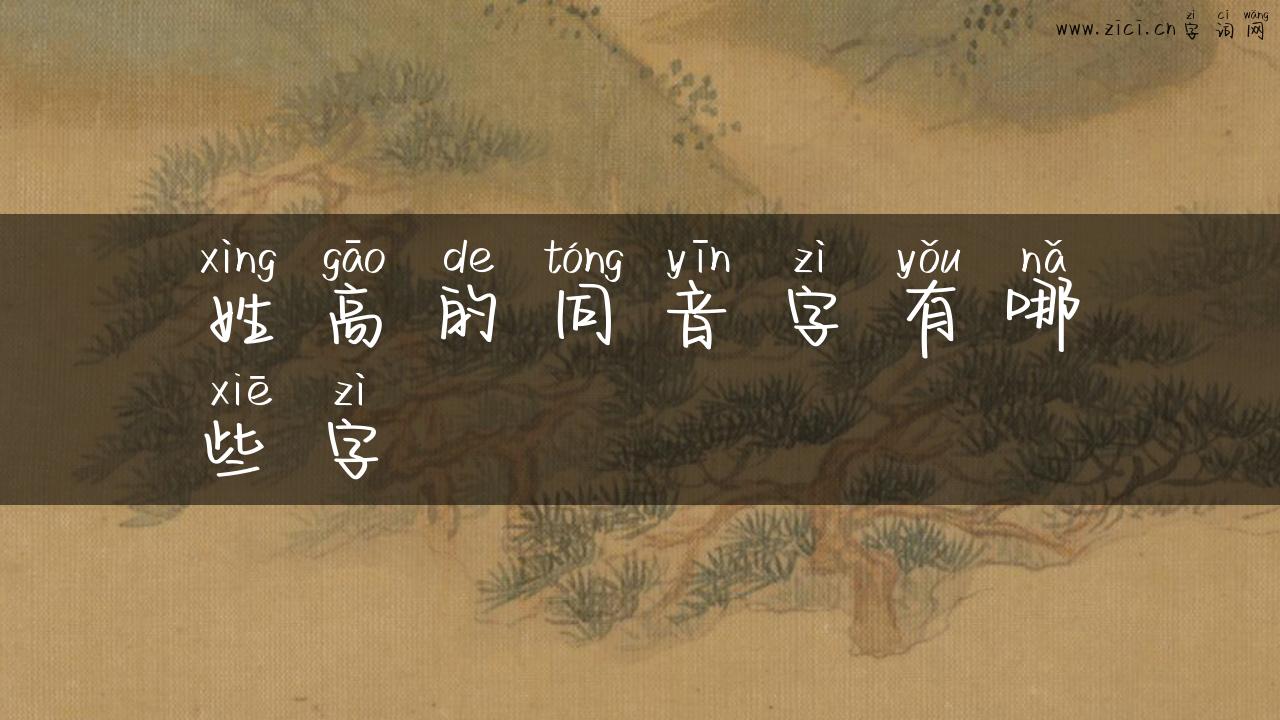 zì cí wǎng
www.zici.cn 字词网
xìng gāo de tóng yīn zì yǒu nǎ
姓高的同音字有哪
xiē zì
些字